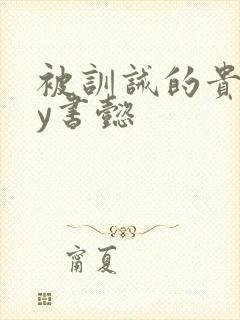 被訓誡的貴
y書懿
甯夏